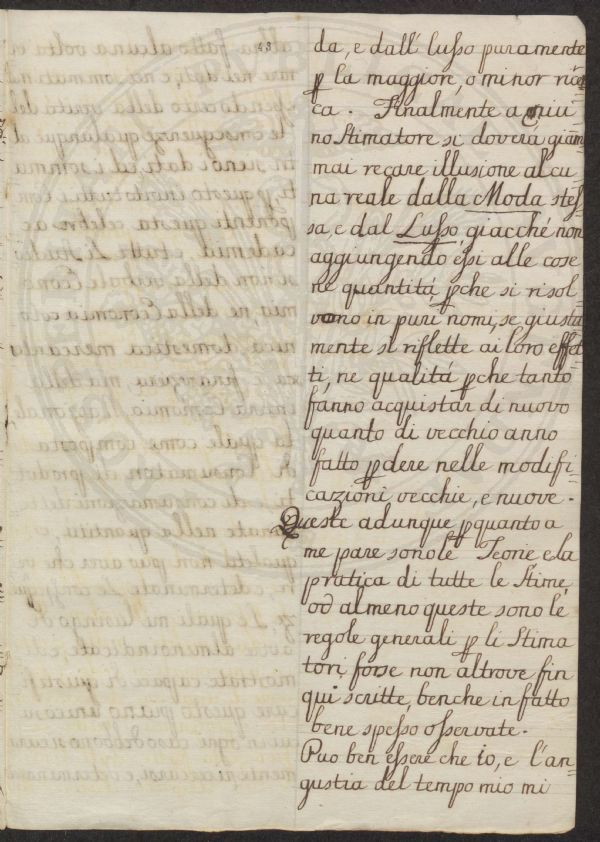 48
da, e dall' lusso puramente
p la maggiore, o minor ricer
ca. Finalmente a niu
no Stimatore si doverà giam
mai recare illusione alcu
na reale dalla Moda stes
sa, e dal Lusso, giacché non
aggiungendo essi alle cose
ne quantitá, pche si risol
vono in puri nomi, se giusta
mente si riflette ai loro effet
ti, ne qualitá pche tanto
fanno acquistar di nuovo
quanto di vecchio anno
fatto pdere nelle modifi
cazioni vecchie, e nuove.
Queste adunque p quanto a
me pare sono le Teorie e la
pratica di tutte le Stime,
od almeno queste sono le
regole generali p li Stima
tori, forse non altrove fin
qui scritte, benche in fatto
bene spesso osservate.
Puo ben essere che io, e l'an
gustia del tempo mio mi